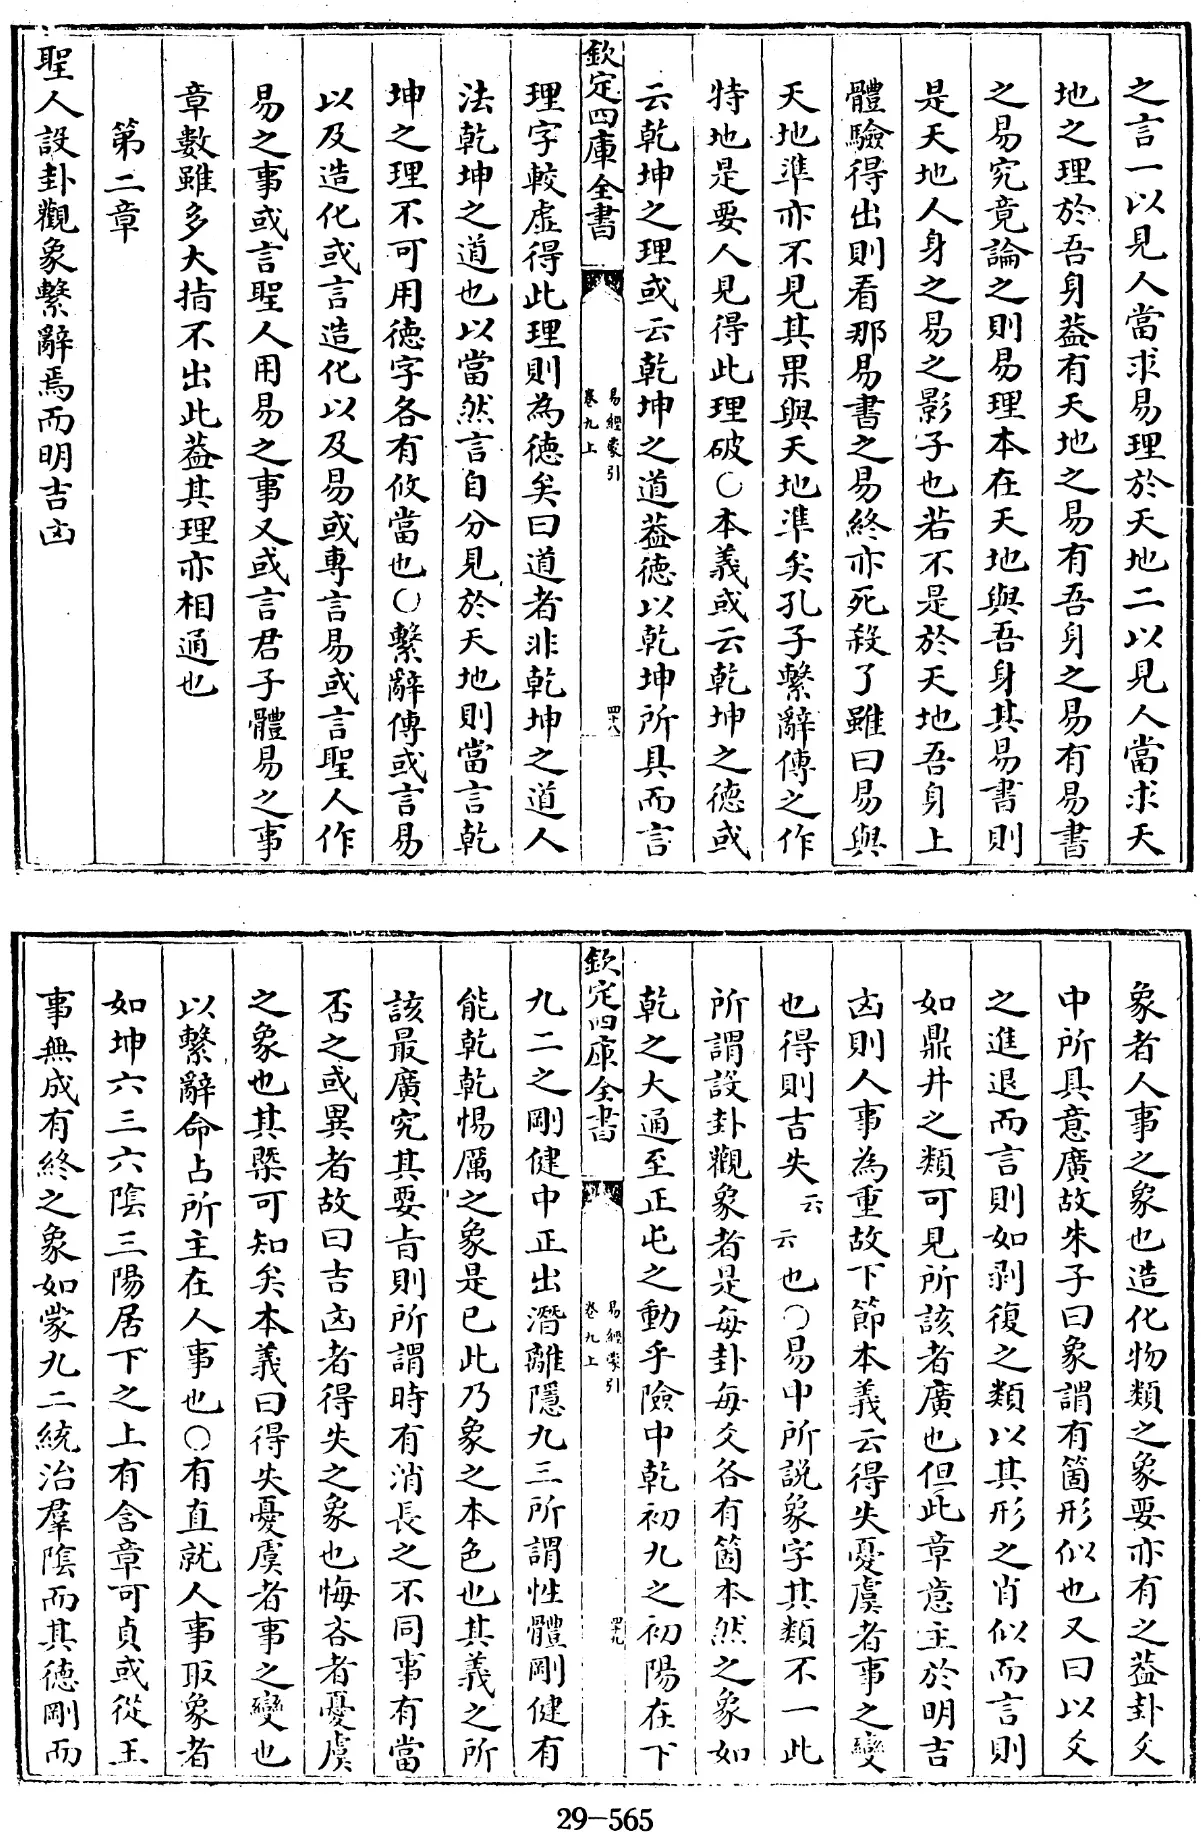 之言一以見人當求易理於天地二以見人當求天
地之理於吾身葢有天地之易有吾身之易有易書
之易究竟論之則易理本在天地與吾身其易書則
是天地人身之易之影子也若不是於天地吾身上
體驗得出則看那易書之易終亦死殺了雖曰易與
天地準亦不見其果與天地準矣孔子繫辭傳之作
特地是要人見得此理破〇本義或云乾坤之德或
云乾坤之理或云乾坤之道葢德以乾坤所具而言
欽定四庫全書
易經蒙引
卷九上
四十八
理字較虛得此理則為德矣曰道者非乾坤之道人
法乾坤之道也以當然言自分見於天地則當言乾
坤之理不可用德字各有攸當也〇繫辭傳或言易
以及造化或言造化以及易或專言易或言聖人作
易之事或言聖人用易之事又或言君子體易之事
章數雖多大指不出此葢其理亦相通也
第二章
聖人設卦觀象繫辭焉而明吉凶
象者人事之象也造化物類之象要亦有之葢卦爻
中所具意廣故朱子曰象謂有箇形似也又曰以爻
之進退而言則如剥復之類以其形之肖似而言則
如鼎井之類可見所該者廣也但此章意主於明吉
凶則人事為重故下節本義云得失憂虞者事之變
也得則吉失云云也〇易中所説象字其類不一此
所謂設卦觀象者是每卦每爻各有箇本然之象如
乾之大通至正屯之動乎險中乾初九之初陽在下
欽定四庫全書
易經蒙引
卷九上
四十九
九二之剛健中正出潛離隱九三所謂性體剛健有
能乾乾惕厲之象是已此乃象之本色也其義之所
該最廣究其要㫖則所謂時有消長之不同事有當
否之或異者故曰吉凶者得失之象也悔吝者憂虞
之象也其槩可知矣本義曰得失憂虞者事之變也
以繫辭命占所主在人事也〇有直就人事取象者
如坤六三六陰三陽居下之上有含章可貞或從王
事無成有終之象如蒙九二統治羣陰而其德剛而
29-565